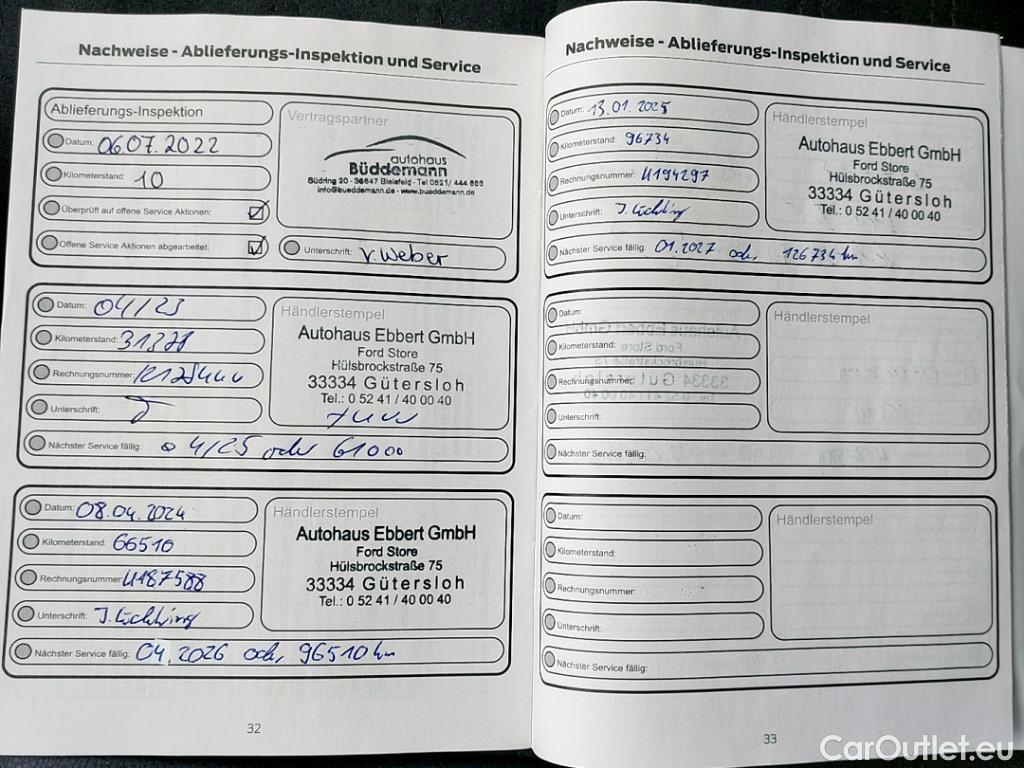 Nachweise - Ablieferungs-Inspektion und Service
Ablieferungs-Inspektion
Datum: 06.07.2022
Kilometerstand: 10
Überprüft auf offene Service Aktionen:
Offene Service Aktionen abgearbeitet:
Vertragspartner
autohaus
Büddemann
info@bueddemann.de - www.bueddemann.de
Unterschrift: V. Weber
Datum: 04/23
Kilometerstand:
Rechnungsnummer:
Unterschrift:
Händlerstempel
Autohaus Ebbert GmbH
Ford Store
Hülsbrockstraße 75
33334 Gütersloh
Tel.: 0 52 41 / 40 00 40
Nächster Service fällig: 04/25 oder 61000
Datum: 08.04.2024
Kilometerstand: 66510
Rechnungsnummer: U187588
Unterschrift:
Händlerstempel
Autohaus Ebbert GmbH
Ford Store
Hülsbrockstraße 75
33334 Gütersloh
Tel.: 0 52 41 / 40 00 40
Nächster Service fällig: 04.2026 od. 96510 km
32
Nachweise - Ablieferungs-Inspektion und Service
Datum: 13.01.2025
Kilometerstand: 96734
Rechnungsnummer: U194297
Unterschrift:
Händlerstempel
Autohaus Ebbert GmbH
Ford Store
Hülsbrockstraße 75
33334 Gütersloh
Tel.: 0 52 41 / 40 00 40
Nächster Service fällig: 01.2027 od. 126734 km
Datum:
Kilometerstand:
Rechnungsnummer:
Unterschrift:
Händlerstempel
Nächster Service fällig:
Datum:
Kilometerstand:
Rechnungsnummer:
Unterschrift:
Händlerstempel
Nächster Service fällig:
33
CarOutlet.eu